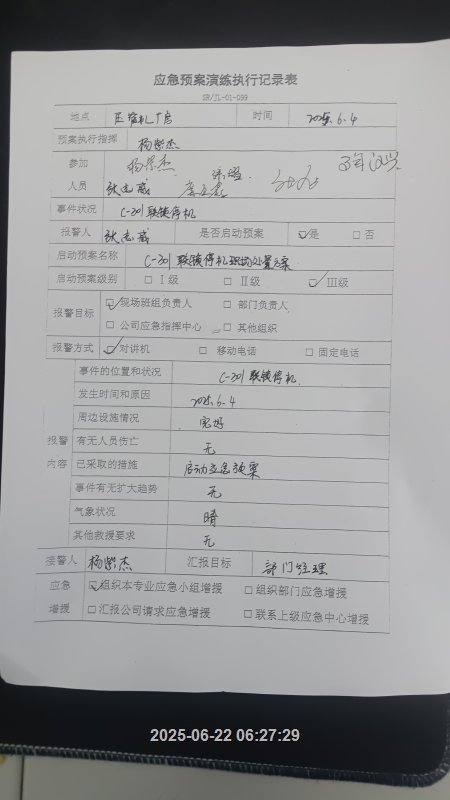 应急预案演练执行记录表
SH/JL-01-099
地点 压缩机厂房 时间 2025.6.4
预案执行指挥 杨紫杰
参加人员 杨紫杰
张志威
事件状况 C-301联锁停机
报警人 张志威 是否启动预案 ☑是 □否
启动预案名称 C-301联锁停机现场处置方案
启动预案级别 □Ⅰ级 □Ⅱ级 ☑Ⅲ级
报警目标 ☑现场班组负责人 □部门负责人
□公司应急指挥中心 □其他组织
报警方式 ☑对讲机 □移动电话 □固定电话
报警内容 事件的位置和状况 C-301联锁停机
发生时间和原因 2025.6.4
周边设施情况 完好
有无人员伤亡 无
已采取的措施 启动应急预案
事件有无扩大趋势 无
气象状况 晴
其他救援要求 无
接警人 杨紫杰 汇报目标 部门经理
应急增援 ☑组织本专业应急小组增援 □组织部门应急增援
□汇报公司请求应急增援 □联系上级应急中心增援
2025-06-22 06:27:29